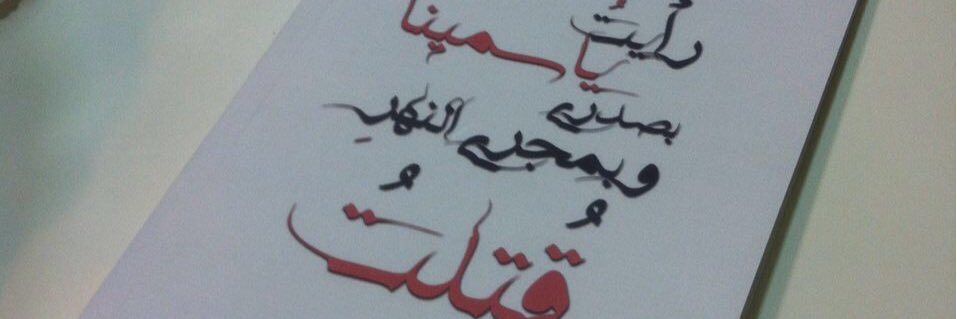 رأيتُ ياسمينا
بصدري
وبمجرى النهرِ
قُتلتُ